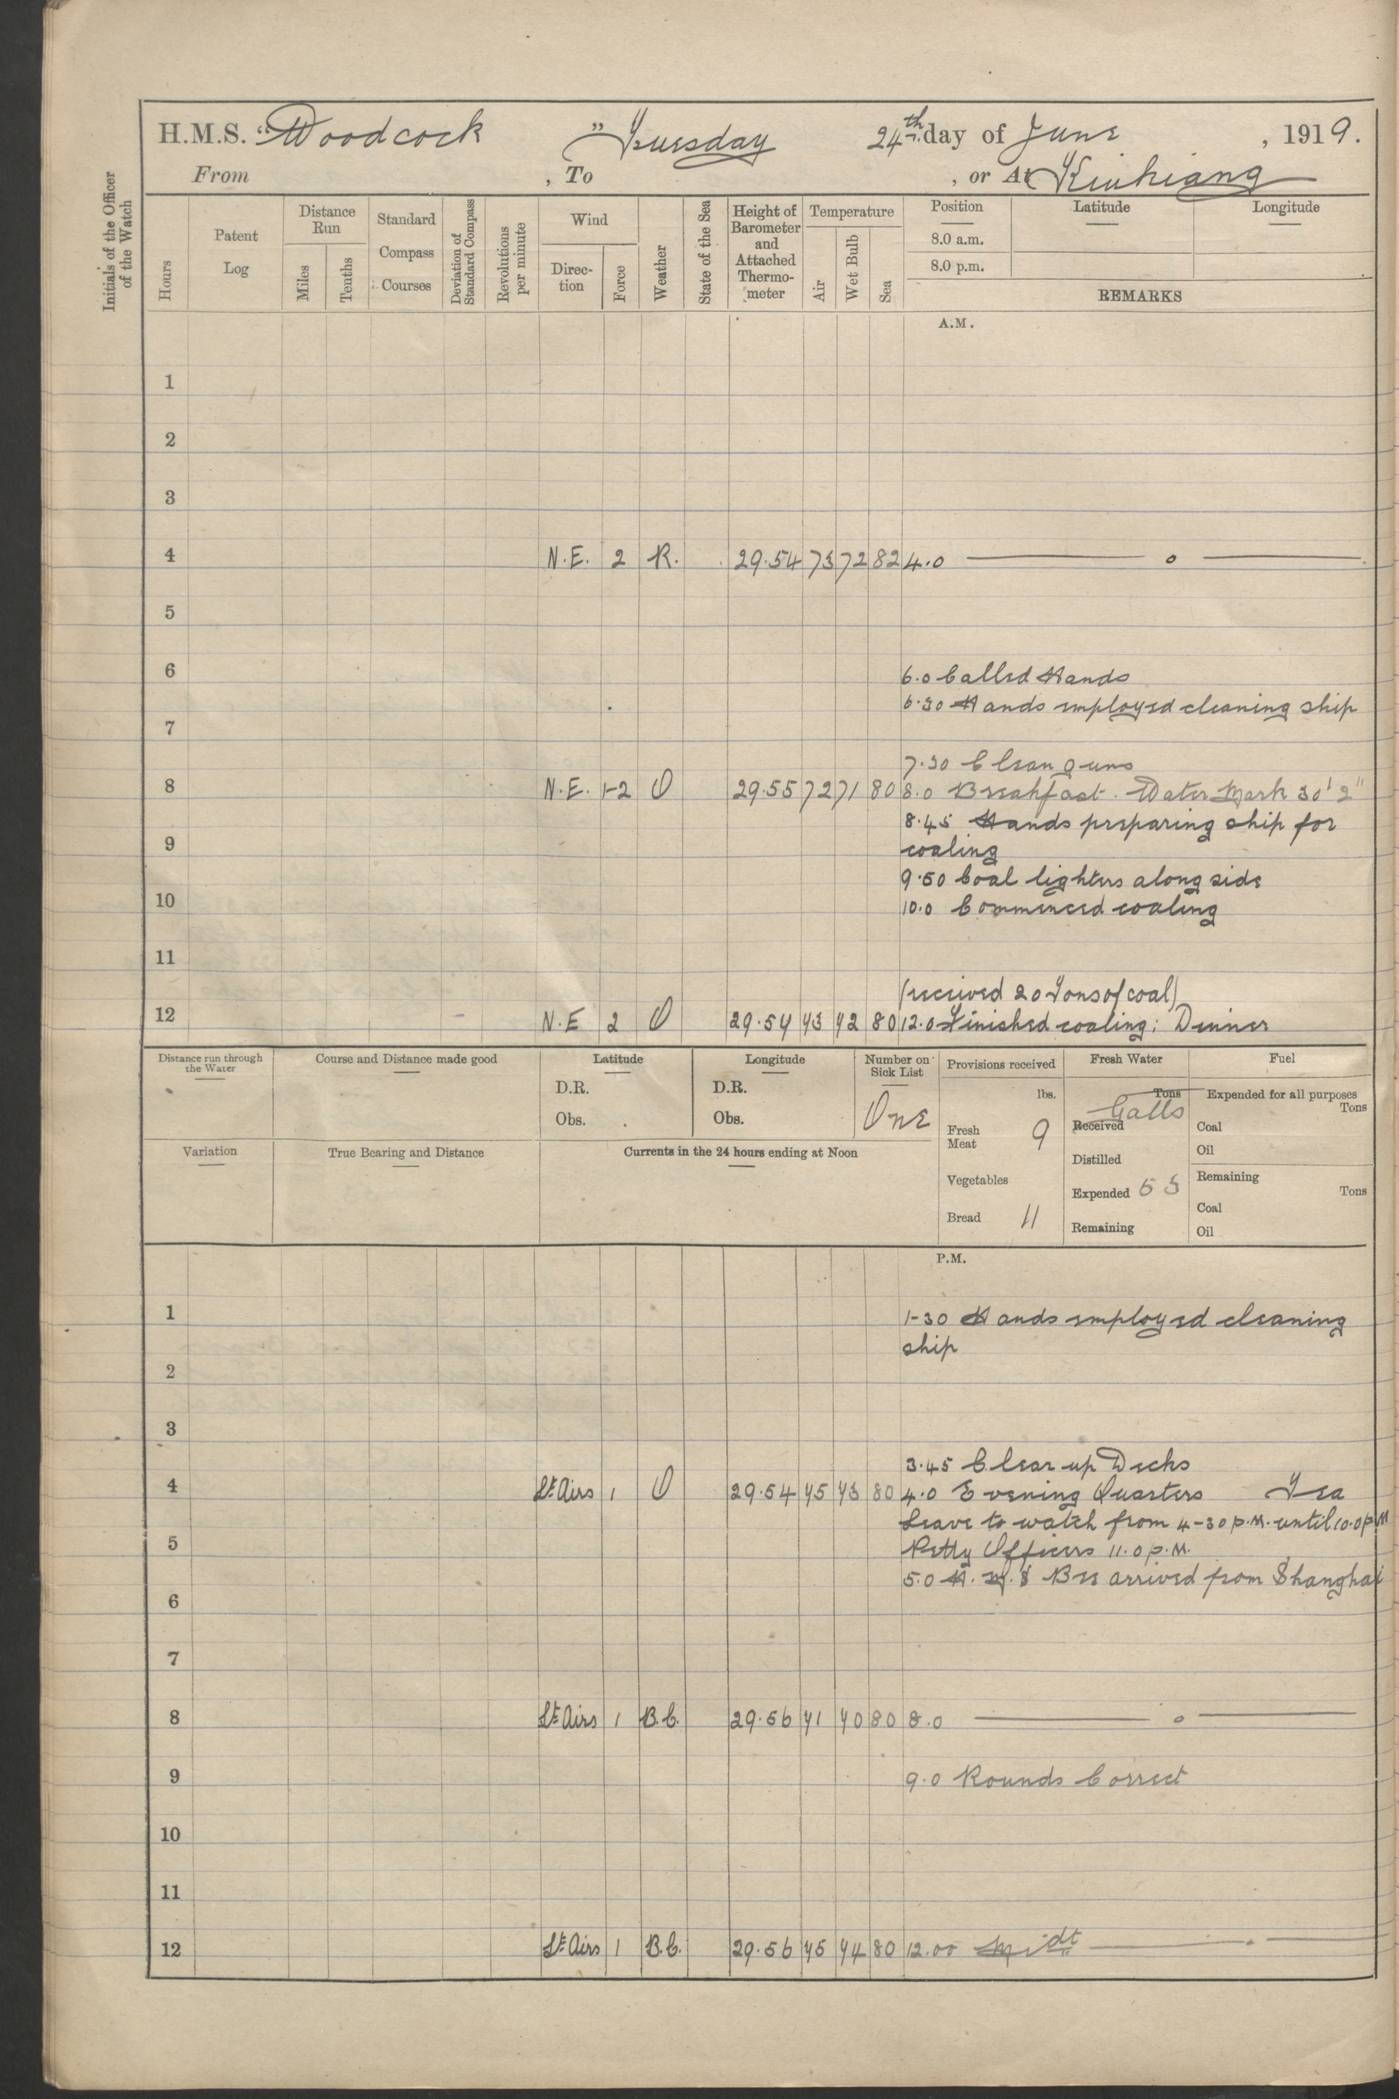 H.M.S. "Woodcock" Tuesday 24th day of June, 1919.
From , To , or At Kiukiang
Initials of the Officer of the Watch
Hours
Patent Log
Distance Run
Miles
Tenths
Standard Compass Courses
Deviation of Standard Compass
Revolutions per minute
Wind
Direc-tion
Force
Weather
State of the Sea
Height of Barometer and Attached Thermo-meter
Temperature
Air
Wet Bulb
Sea
Position
8.0 a.m.
8.0 p.m.
Latitude
Longitude
REMARKS
A.M.
1
2
3
4 N.E. 2 R. 29.54 73 72 82 4.0 —— o ——
5
6
6.0 Called Hands
6.30 Hands employed cleaning ship
7
7.30 Clean guns
8 N.E. 1-2 O 29.55 72 71 80 8.0 Breakfast. Water Mark 30' 2"
8.45 Hands preparing ship for
9
coaling
9.50 Coal lighters along side
10 10.0 Commenced coaling
11
(received 20 Tons of coal)
12 N.E 2 O 29.54 73 72 80 12.0 Finished coaling: Dinner
Distance run through the Water
Course and Distance made good
Latitude
D.R.
Obs.
Longitude
D.R.
Obs.
Number on Sick List
One
Provisions received
lbs.
Fresh Meat 9
Vegetables
Bread 11
Fresh Water
Tons
Galls
Received
Distilled
Expended 55
Remaining
Fuel
Expended for all purposes
Tons
Coal
Oil
Remaining
Tons
Coal
Oil
Variation
True Bearing and Distance
Currents in the 24 hours ending at Noon
P.M.
1 1-30 Hands employed cleaning
ship
2
3
3.45 Clear up Decks
4 Lt Airs 1 O 29.54 75 73 80 4.0 Evening Quarters Tea
Leave to watch from 4-30 p.m. until 10.0 p.m
5 Petty Officers 11.0 p.m.
5.0 H.M.S Bee arrived from Shanghai
6
7
8 Lt Airs 1 B.C. 29.56 71 70 80 8.0 —— o ——
9 9.0 Rounds Correct
10
11
12 Lt Airs 1 B.C. 29.56 75 74 80 12.00 Midt ——